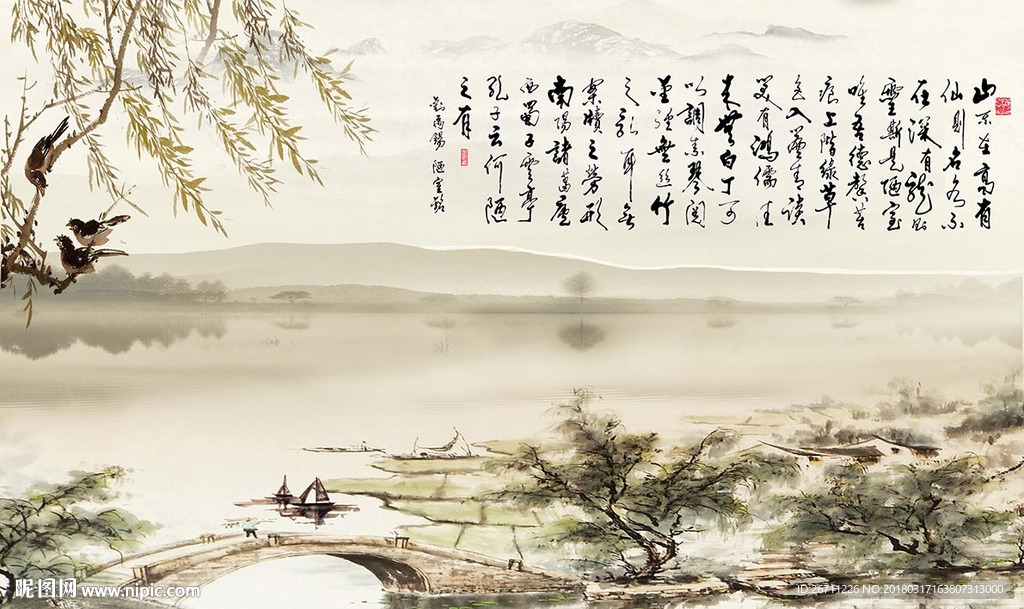 山不在高有
仙則名水不
在深有龍則
靈斯是陋室
唯吾德馨苔
痕上階綠草
色入簾青談
笑有鴻儒往
来無白丁可
以調素琴閱
金經無絲竹
之亂耳無
案牘之勞形
南陽諸葛廬
西蜀子雲亭
孔子云何陋
之有
劉禹錫 陋室銘
昵图网 www.nipic.com
ID:26711226 NO:20180317163807313000